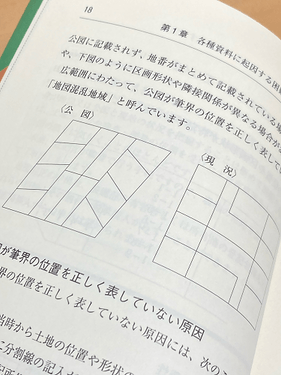 18
第1章 各種資料に起因する困
公図に記載されず、地番がまとめて記載されている場
や、下図のように区画形状や隣接関係が異なる場合が
広範囲にわたって、公図が筆界の位置を正しく表して
「地図混乱地域」と呼んでいます。
〈公 図〉
〈現 況〉
が筆界の位置を正しく表していない原因
界の位置を正しく表していない原因には、次のこ
当時から土地の位置や形状の
に分割線の記入を